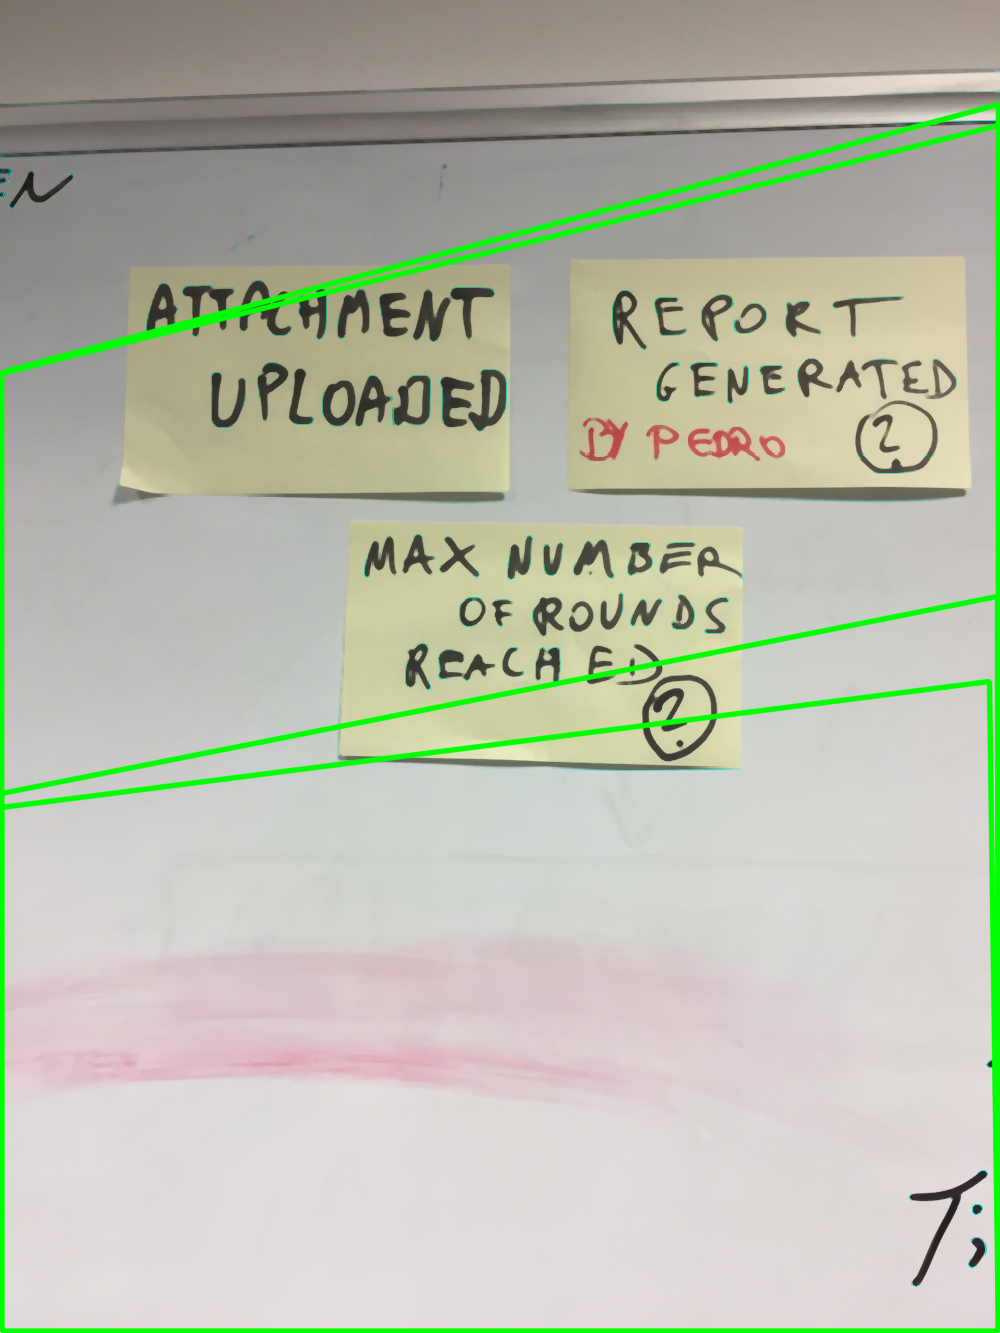 EN
ATTACHMENT
UPLOADED
REPORT
GENERATED
BY PEDRO ?
MAX NUMBER
OF ROUNDS
REACHED
?